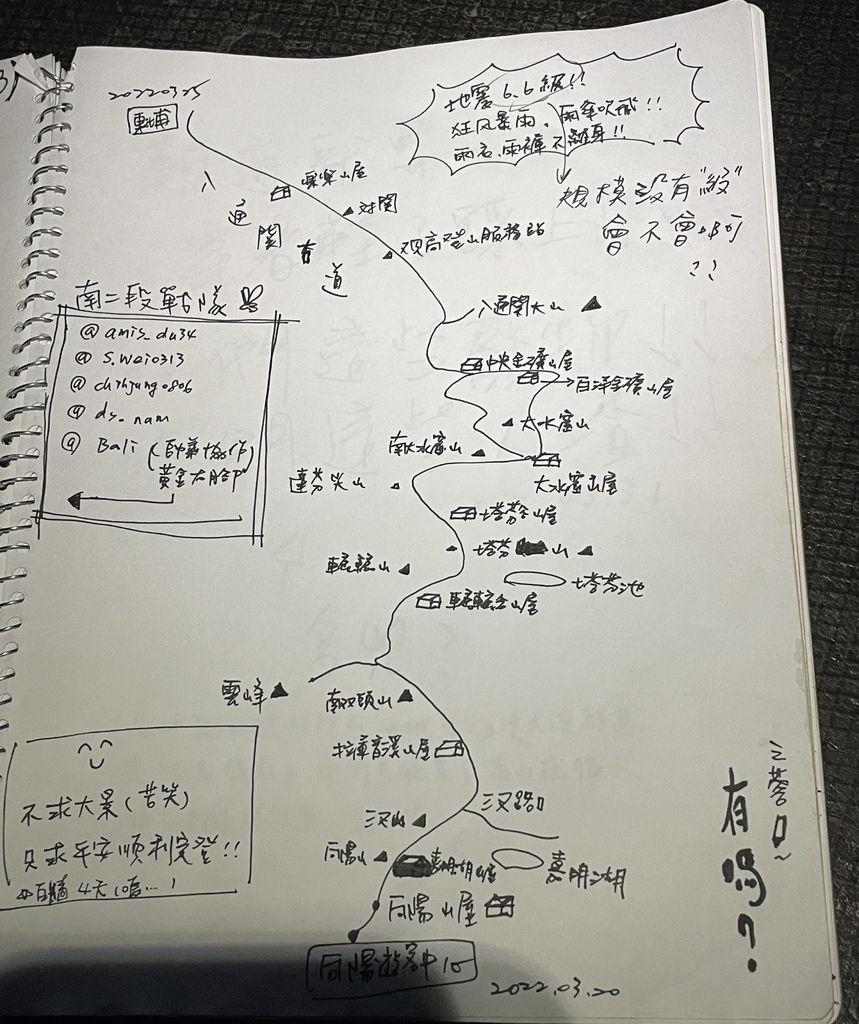 20220325
東埔
地震 6.6級!!
狂風暴雨、雨傘吹壞!!
雨衣、雨褲不離身!!
規模沒有"級"
會不會
??
樂樂山屋
對關
八通關古道
观高登山服務站
八通關大山
南二段戰隊
@amis_du34
@s.wei0313
@chihjung0806
@ds_nam
@Bali (帥氣協作)
黃金大臉P
中央金礦山屋
白洋金礦山屋
大水窟山
南大水窟山
大水窟山屋
達芬尖山
塔芬谷山屋
塔芬山
轆轆山
塔芬池
轆轆谷山屋
雲峰
南双頭山
拉庫音溪山屋
三叉路口
三叉山
向陽山
嘉明湖山屋
嘉明湖
向陽山屋
向陽遊客中心
2022.03.20
不求大景(苦笑)
只求平安順利完登!!
白牆4天
有嗎?